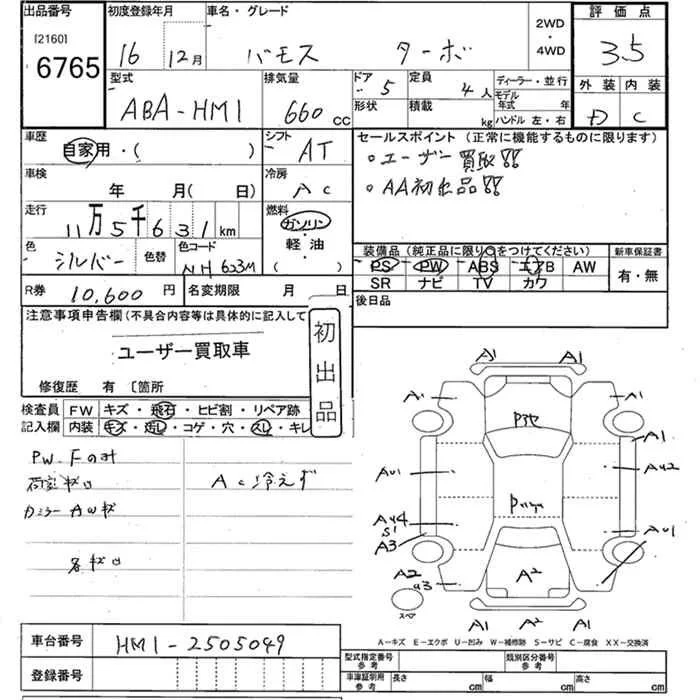 出品番号
[2160]
6765
初度登録年月
16年 12月
車名・グレード
バモス ターボ
2WD
・
4WD
評価点
3.5
外装 内装
D C
型式
ABA-HM1
排気量
660 cc
ドア
5
定員
4人
形状
積載
kg
ディーラー・並行
モデル
年式 年
ハンドル 左・右
車歴
自家用・( )
シフト
AT
セールスポイント (正常に機能するものに限ります)
。ユーザー買取!!
。AA初出品!!
車検
年 月( 日)
冷房
AC
走行
11万5千631km
燃料
ガソリン
・
軽油
( )
色
シルバー
色替
色コード
NH623M
装備品 (純正品に限り○をつけてください)
新車保証書
PS PW ABS エアB AW
SR ナビ TV カワ
有・無
R券 10,600円
名変期限 月 日
後日品
注意事項申告欄(不具合内容等は具体的に記入して
ユーザー買取車
初出品
修復歴 有 〔箇所
検査員 FW キズ・飛石・ヒビ割・リペア跡
記入欄 内装 キズ・汚レ・コゲ・穴・スレ・キレ
PW.Fのみ
AC冷えず
A1 A1
A1 A1
A1
AU1 AU2
AU4
S1
A3 AU1
A2
U3
A2
スペア
A1 A2 A1
A-キズ E-エクボ U-凹み W-補修跡 S-サビ C-腐食 XX-交換済
車台番号
HM1-2505049
登録番号
型式指定番号
参考
類別区分番号
参考
車庫証明用
参考
長さ cm 幅 cm 高さ cm